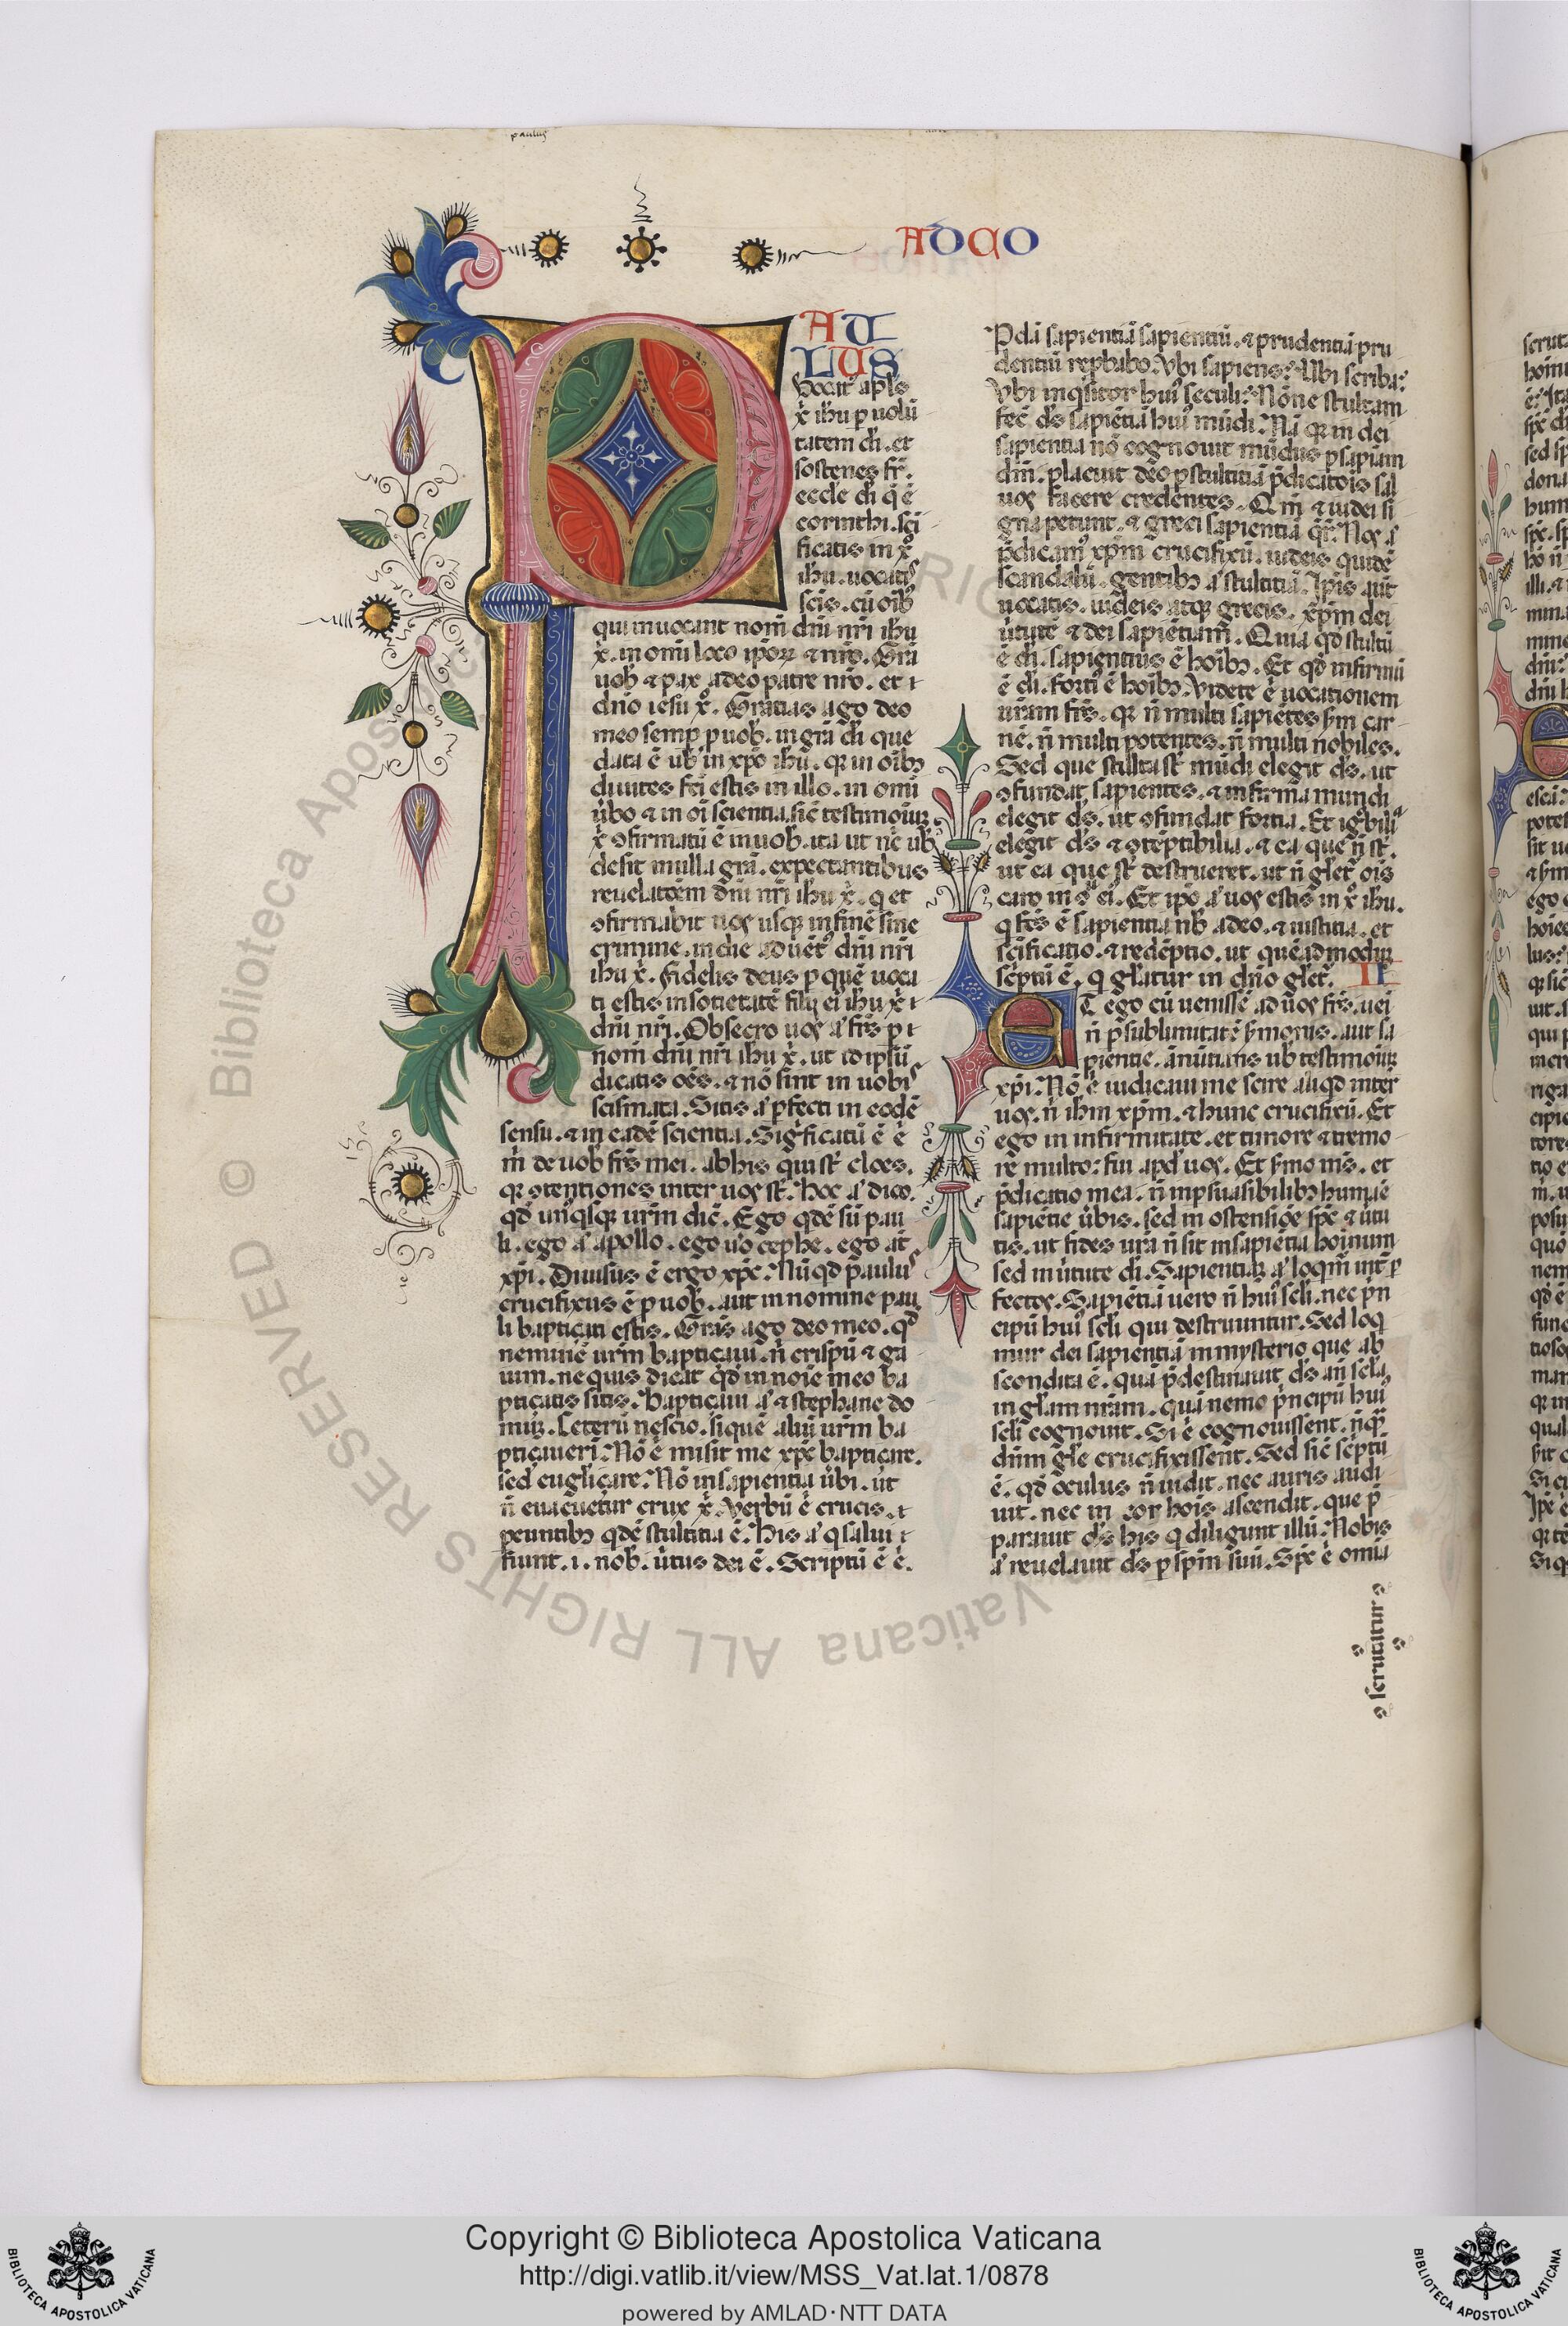 paulus
AD CO
PAU
LUS
vocat' apl's
x̄ ihu p uolū
tatem di. et
sostenes fr̄.
eccl'e di q̄ ē
corinthi. sc̄i
ficatis in x̄o
ihu. uocatis
scīs. cū oībꝫ
qui inuocant nom̄ dnī nrī ihu
x̄. in omī loco ipōꝝ ⁊ nrō. Grā
uob̄ ⁊ pax adeo patre nrō. et ı
dnō iesu x̄o. Gratias ago deo
meo semp̄ p uob̄. in grā di que
data ē ub̄ in xpō ihu. qꝛ in oībꝫ
diuites fc̄i estis in illo. in omī
ūbo ⁊ in oī scientia. sic̄ testimoīuꝫ
x̄ ꝯfirmatū ē in uob̄. ita ut nc̄ ub̄
desit in ulla grā. expectantibus
reuelatōem dnī nrī ihu x̄. q et
ꝯfirmabit uos usqꝫ in finē sine
crimine. in die aduēt' dnī nrī
ihu x̄. Fidelis deus p quē uoca
ti estis in societatē filij ei' ihu x̄ ı
dnī nrī. Obsecro uos a' fr̄s p ı
nom̄ dnī nrī ihu x̄. ut id ipsū
dicatis oēs. ⁊ nō sint in uobis
scismata. Sitis a' pfecti in eodē
sensu. ⁊ in eadē scientia. Sig'ficatū ē ē
m̄ de uob̄ fr̄s mei. ab his qui st̄ cloes.
qꝛ ꝯtentiones inter uos st̄. Hoc a' dico.
qd̄ unꝰqsqꝫ ur̄m dic̄. Ego qdē sū pau
li. ego a' apollo. ego uo cephe. ego at̄
xpī. Diuisus ē ergo xpc̄? Nūqd paulus
crucifixus ē p uob̄. aut in nomine pau
li bapticati estis. Grās ago deo meo. qd
neminē ur̄m bapticaui. n̄ crispū ⁊ ga
ium. ne quis dicat qd in noīe meo ba
pticatis sitis. Bapticaui a' ⁊ stephane do
muꝫ. Ceterū nescio. si quē aliū ur̄m ba
pticauerī. Nō ē misit me xpc̄ bapticare.
sed euḡlicare. Nō in sapientia ūbi. ut
n̄ euacuetur crux x̄. Verbū ē crucis. ı
peuntibꝫ qdē stultitia ē. His a' q salui ı
fiunt. ı. nob̄. ūtus dei ē. Scriptū ē ē.
Pdā sapientiā sapientiū. ⁊ prudentiā pru
dentiū rep̄babo. Vbi sapiens? Vbi scriba?
Vbi inqsitor huiꝰ seculi? Nōne stultam
fec̄ ds̄ sapiētiā huiꝰ mūdi? Nā qꝛ in dei
sapientia nō cognouit mūdus p sapiam
dm̄. placuit deo p stultitiā p̄dicatōis sal
uos facere credentes. Qm̄ ⁊ iudei si
gna petunt. ⁊ greci sapientiā qr̄t. Nos a'
p̄dicamꝰ xpm̄ crucifixū. iudeis quidē
scandalū. gentibꝫ a' stultitiā. Ipīs aut
uocatis. iudeis atqꝫ grecis. xpm̄ dei
ūtutē ⁊ dei sapiētiam. Quia qd stultū
ē di. sapientius ē hoībꝫ. Et qd infirmū
ē di. fortiꝰ ē hoībꝫ. Videte ē uocationem
ur̄am fr̄s. qꝛ n̄ multi sapiētes s̄m car
nē. n̄ multi potentes. n̄ multi nobiles.
Sed que stulta st̄ mūdi elegit ds̄. ut
ꝯfundat sapientes. ⁊ infirma mundi
elegit ds̄. ut ꝯfundat fortia. Et iḡbilia
elegit ds̄ ⁊ ꝯteptibilia. ⁊ ea que n̄ st̄.
ut ea que st̄ destrueret. ut n̄ gl'et' oīs
caro in ꝯ' eiꝰ. Et ipō a' uos estis in x̄o ihu.
q fc̄s ē sapientia nb̄ adeo. ⁊ iustitia. et
sc̄ificatio. ⁊ redēptio. ut quēadmoduꝫ
sc̄ptū ē. q gl'iatur in dnō gl'et'. II
ET ego cū uenissē ad uos fr̄s. uei
n̄ p sublimitatē s̄monis. aut sa
pientie. anūtians ub̄ testimoiuꝫ
xpī. Nō ē iudicaui me scire aliqd inter
uos. n̄ ihm xpm̄. ⁊ hunc crucifixū. Et
ego in infirmitate. et timore ⁊ tremo
re multo: fui apd' uos. Et s̄mo mīs. et
p̄dicatio mea. n̄ inpsuasibilibꝫ humāe
sapiētie ūbis. sed in ostensiōe spc̄ ⁊ ūtu
tis. ut fides ur̄a n̄ sit in sapiētia hoīnum.
sed in ūtute di. Sapientiaꝫ a' loqm̄ int' p
fectos. Sapiētiā uero n̄ huiꝰ scl'i. nec p'n
cipū huiꝰ scl'i qui destruuntur. Sed loq
mur dei sapientiā in mysterio que ab
scondita ē. quā p̄destinauit ds̄ an̄ scl'a.
in gl'am nr̄am. quā nemo p'ncipū huiꝰ
scl'i cognouit. Si ē cognouissent. nūqꝫ
dnm̄ gl'e crucifixissent. Sed sic̄ sc̄ptū
ē. qd oculus n̄ uidit. nec auris audi
uit. nec in cor hoīs ascendit. que p̄
parauit ds̄ his q diligunt illū. Nobis
a' reuelauit ds̄ p spm̄ suū. Spc̄ ē omīa
scrutatur
© Biblioteca Apostolica Vaticana ALL RIGHTS RESERVED
Copyright © Biblioteca Apostolica Vaticana
http://digi.vatlib.it/view/MSS_Vat.lat.1/0878
powered by AMLAD·NTT DATA
BIBLIOTECA APOSTOLICA VATICANA
BIBLIOTECA APOSTOLICA VATICANA